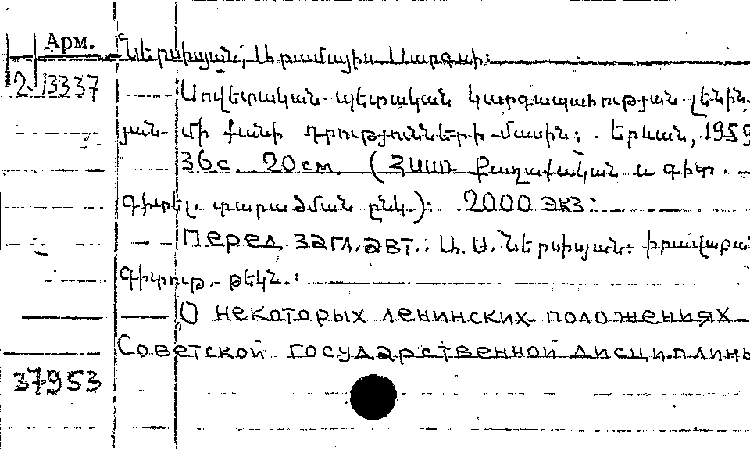 Арм. Ներսիսյան, Արամայիս Սարգսի:
2-3337 Սովետական պետական կարգապահության լենին-
յան մի քանի դրույթունների մասին: Երևան, 1959
36с. 20см. (ՀՍՍՌ Քաղաքական և գիտ.
գիտել. տարածման ընկ.): 2000 экз:
Перед загл. авт.: Ա. Ս. Ներսիսյան: իրավաբան
գիտութ. թեկն.:
О некоторых ленинских положениях
Советской государственной дисциплины
37953